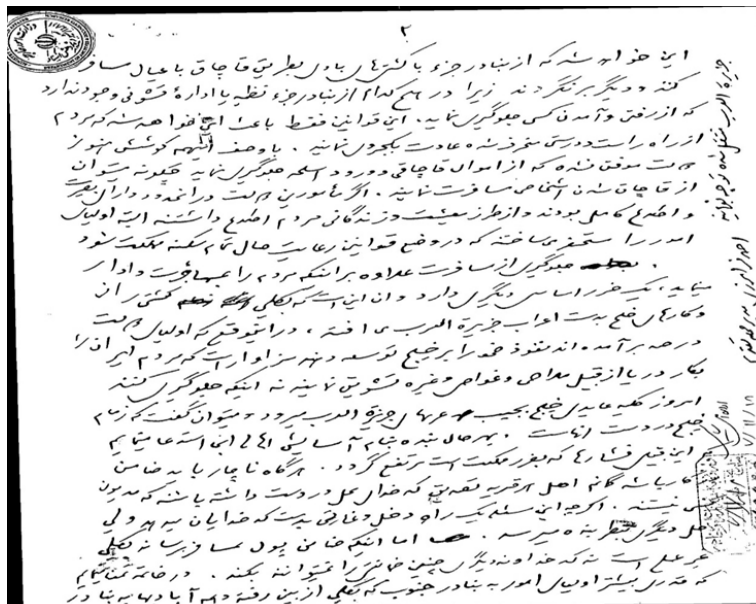 ۲
این خواهد شد که از بنادر جزء با کشتی‌های بادی بطریق قاچاق با عیال مسافرت
کنند و دیگر برنگردند زیرا در هیچ کدام از بنادر جزء نظمیه یا اداره قشونی وجود ندارد
که از رفتن و آمدن کسی جلوگیری نماید. این قوانین فقط باعث این خواهد شد که مردم
از راه راست و درستی منحرف شده عادت بکجروی نمایند. با وصف اینهمه کوشش هنوز
دولت موفق نشده که از اموال قاچاقی و ورود اسلحه جلوگیری نماید چگونه میتوان
از قاچاق شدن اشخاص مسافرت نمایند. اگر مأمورین دولت در این حدود دارای بصیرت
و اطلاع کاملی بودند و از طرز معیشت و زندگانی مردم اطلاع داشتند البته اولیای
امور را مستحضر میساختند که در وضع قوانین رعایت حال تمام سکنه مملکت شود
جلوگیری از مسافرت علاوه بر اینکه مردم را بمهاجرت وادار
مینماید، یک ضرر اساسی دیگری دارد و آن این است که بکلی کشتی رانی
و کارهای خلیج بدست اعراب جزیرة العرب می افتد، در این موقع که اولیای دولت
در صدد برآمده اند نفوذ خود را بر خلیج توسعه دهند سزاوار است که مردم ایران را
بکار دریا از قبیل ملاحی و غواصی و غیره تشویق نمایند نه اینکه جلوگیری کنند
امروز کلیه عایدی خلیج بجیب عربهای جزیرة العرب میرود و میتوان گفت که زمام
خلیج در دست آنهاست. بهرحال بنده بنام آسایش اهالی استدعا مینمایم
این قبیل فشارها که بضرر مملکت است مرتفع گردد. هرگاه ناچار باید ضامن
اصل هر قریه تصدیق که
نیستند. اگرچه این مسئله یک راه دخل و غارتی بدست کدخدایان میدهد ولی
دیگری بنظر بنده نمیرسد. اما اینکه ضامن پول بمسافر برساند بکلی
غیر عملی است که خداوند دیگری چنین ضامنی را نمیتواند بکند. در خاتمه تمنا مینمایم
که قدری بیشتر اولیای امور به بنادر جنوب که بکلی از بین رفته و همه آبادیها به بنادر
جزیرة العرب منتقل شده توجه فرمایند